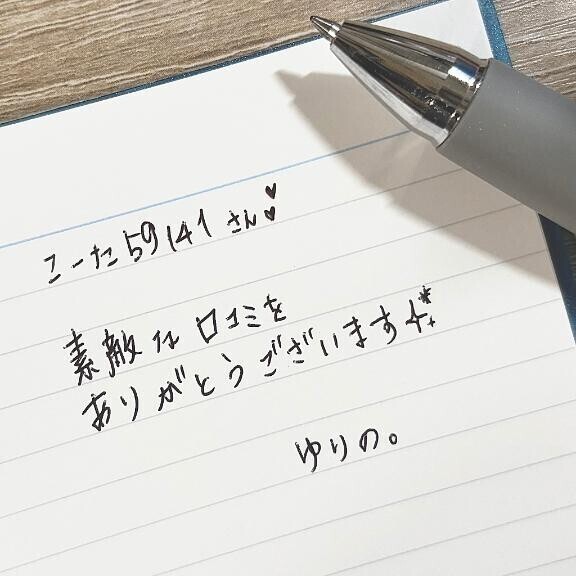 こーた59141さん♥♥
素敵な口コミを
ありがとうございます✨
ゆりの。